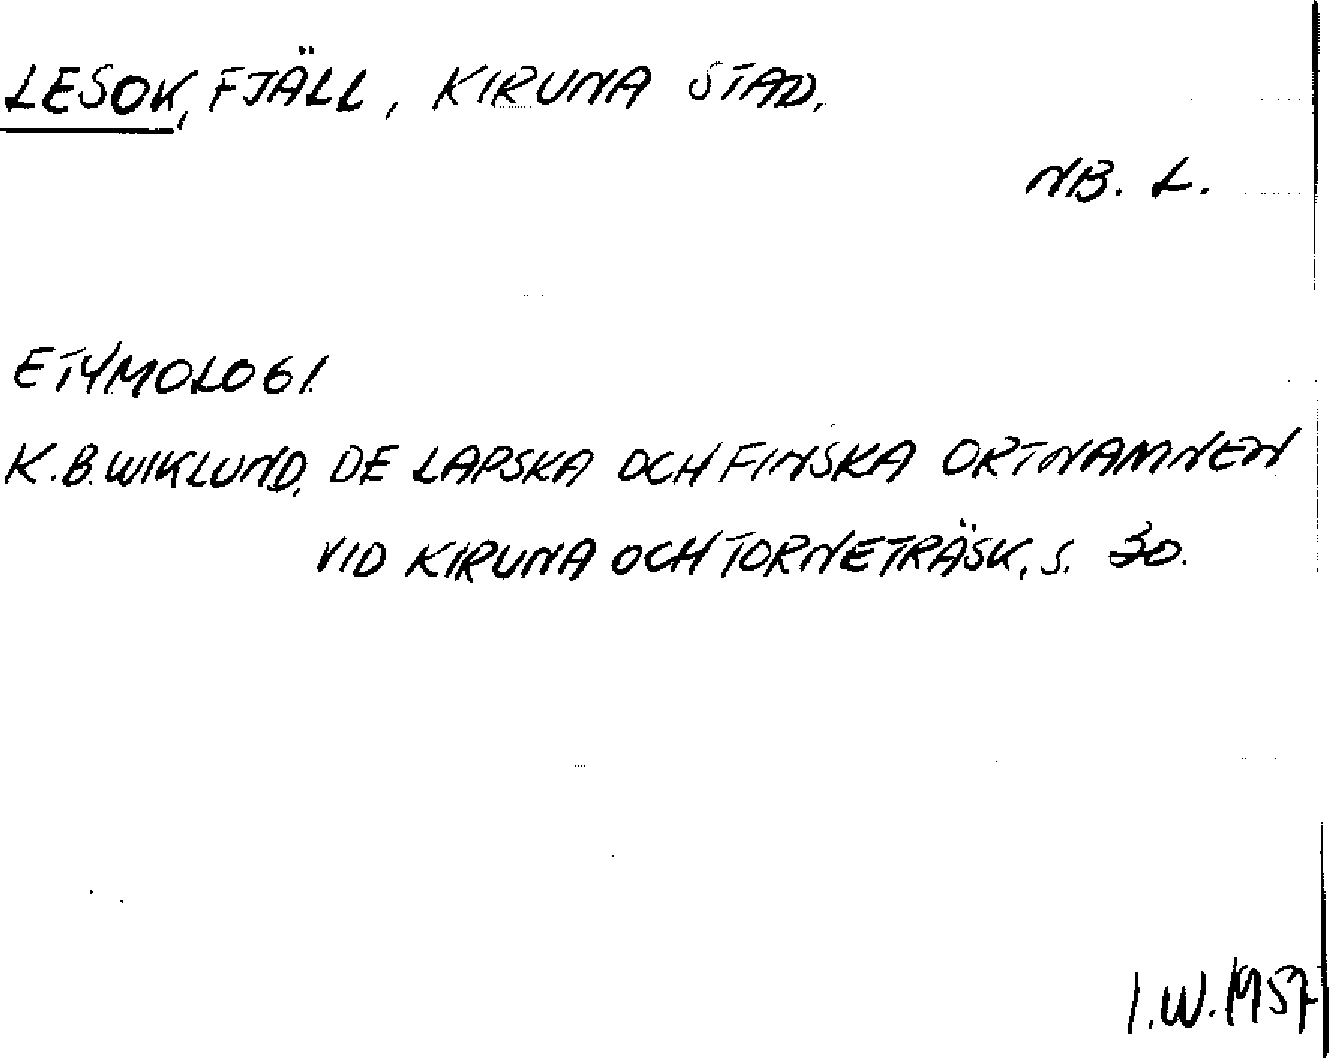 LESOK, FJÄLL, KIRUNA STAD.
NB. L.
ETYMOLOGI.
K.B. WIKLUND, DE LAPSKA OCH FINSKA ORTNAMNEN
VID KIRUNA OCH TORNETRÄSK, S. 30.
I.W. 1957